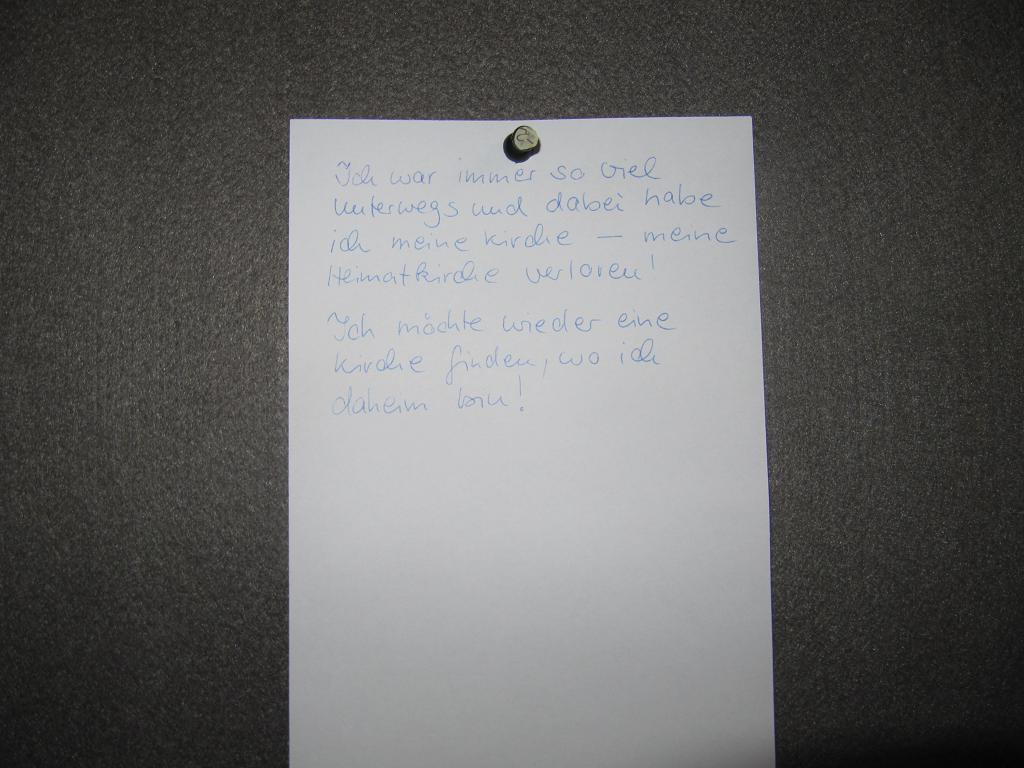 Ich war immer so viel
unterwegs und dabei habe
ich meine Kirche – meine
Heimatkirche verloren!
Ich möchte wieder eine
Kirche finden, wo ich
daheim bin!